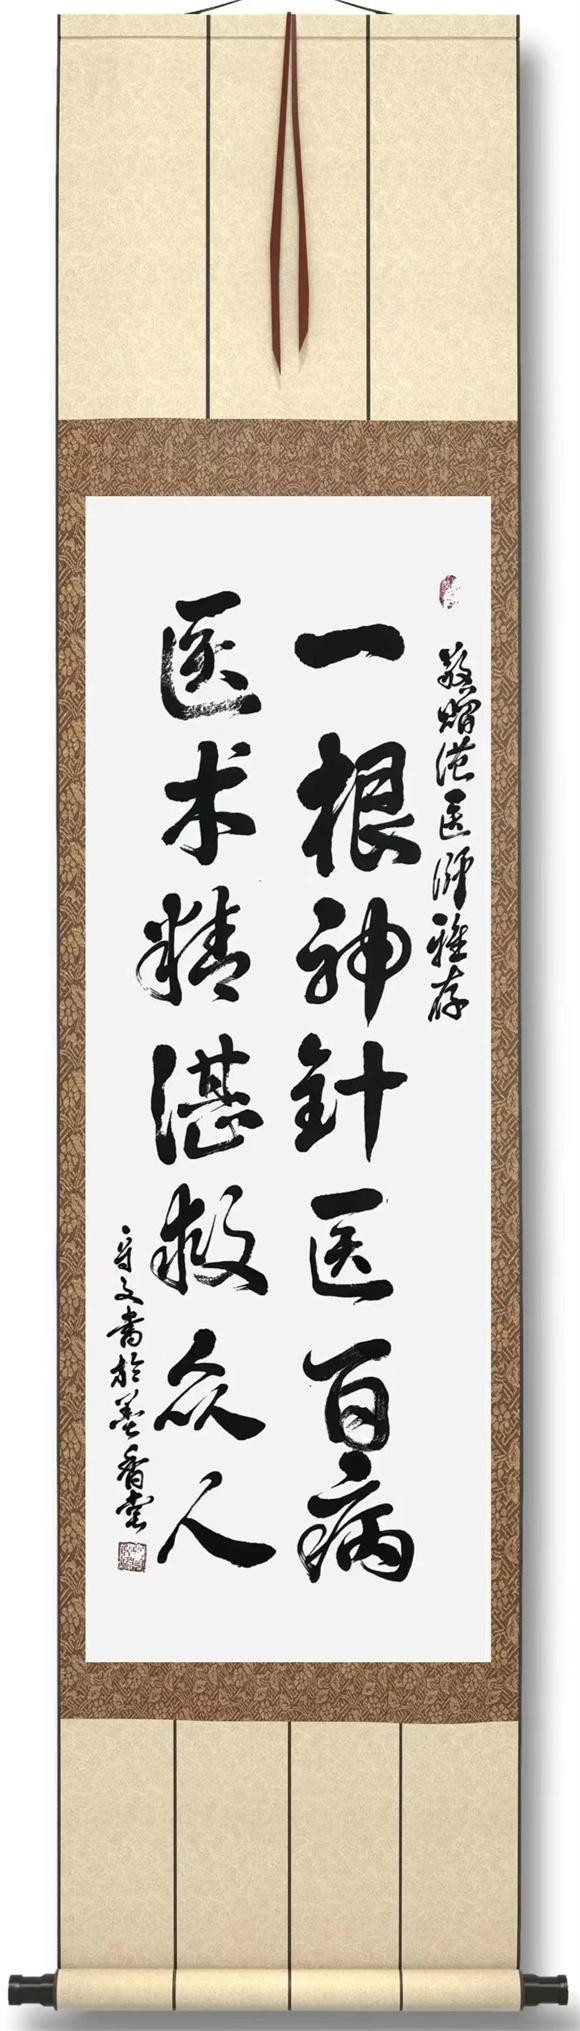 敬赠港医师雅存
一根神针医百病
医术精湛救众人
守文书於墨香堂